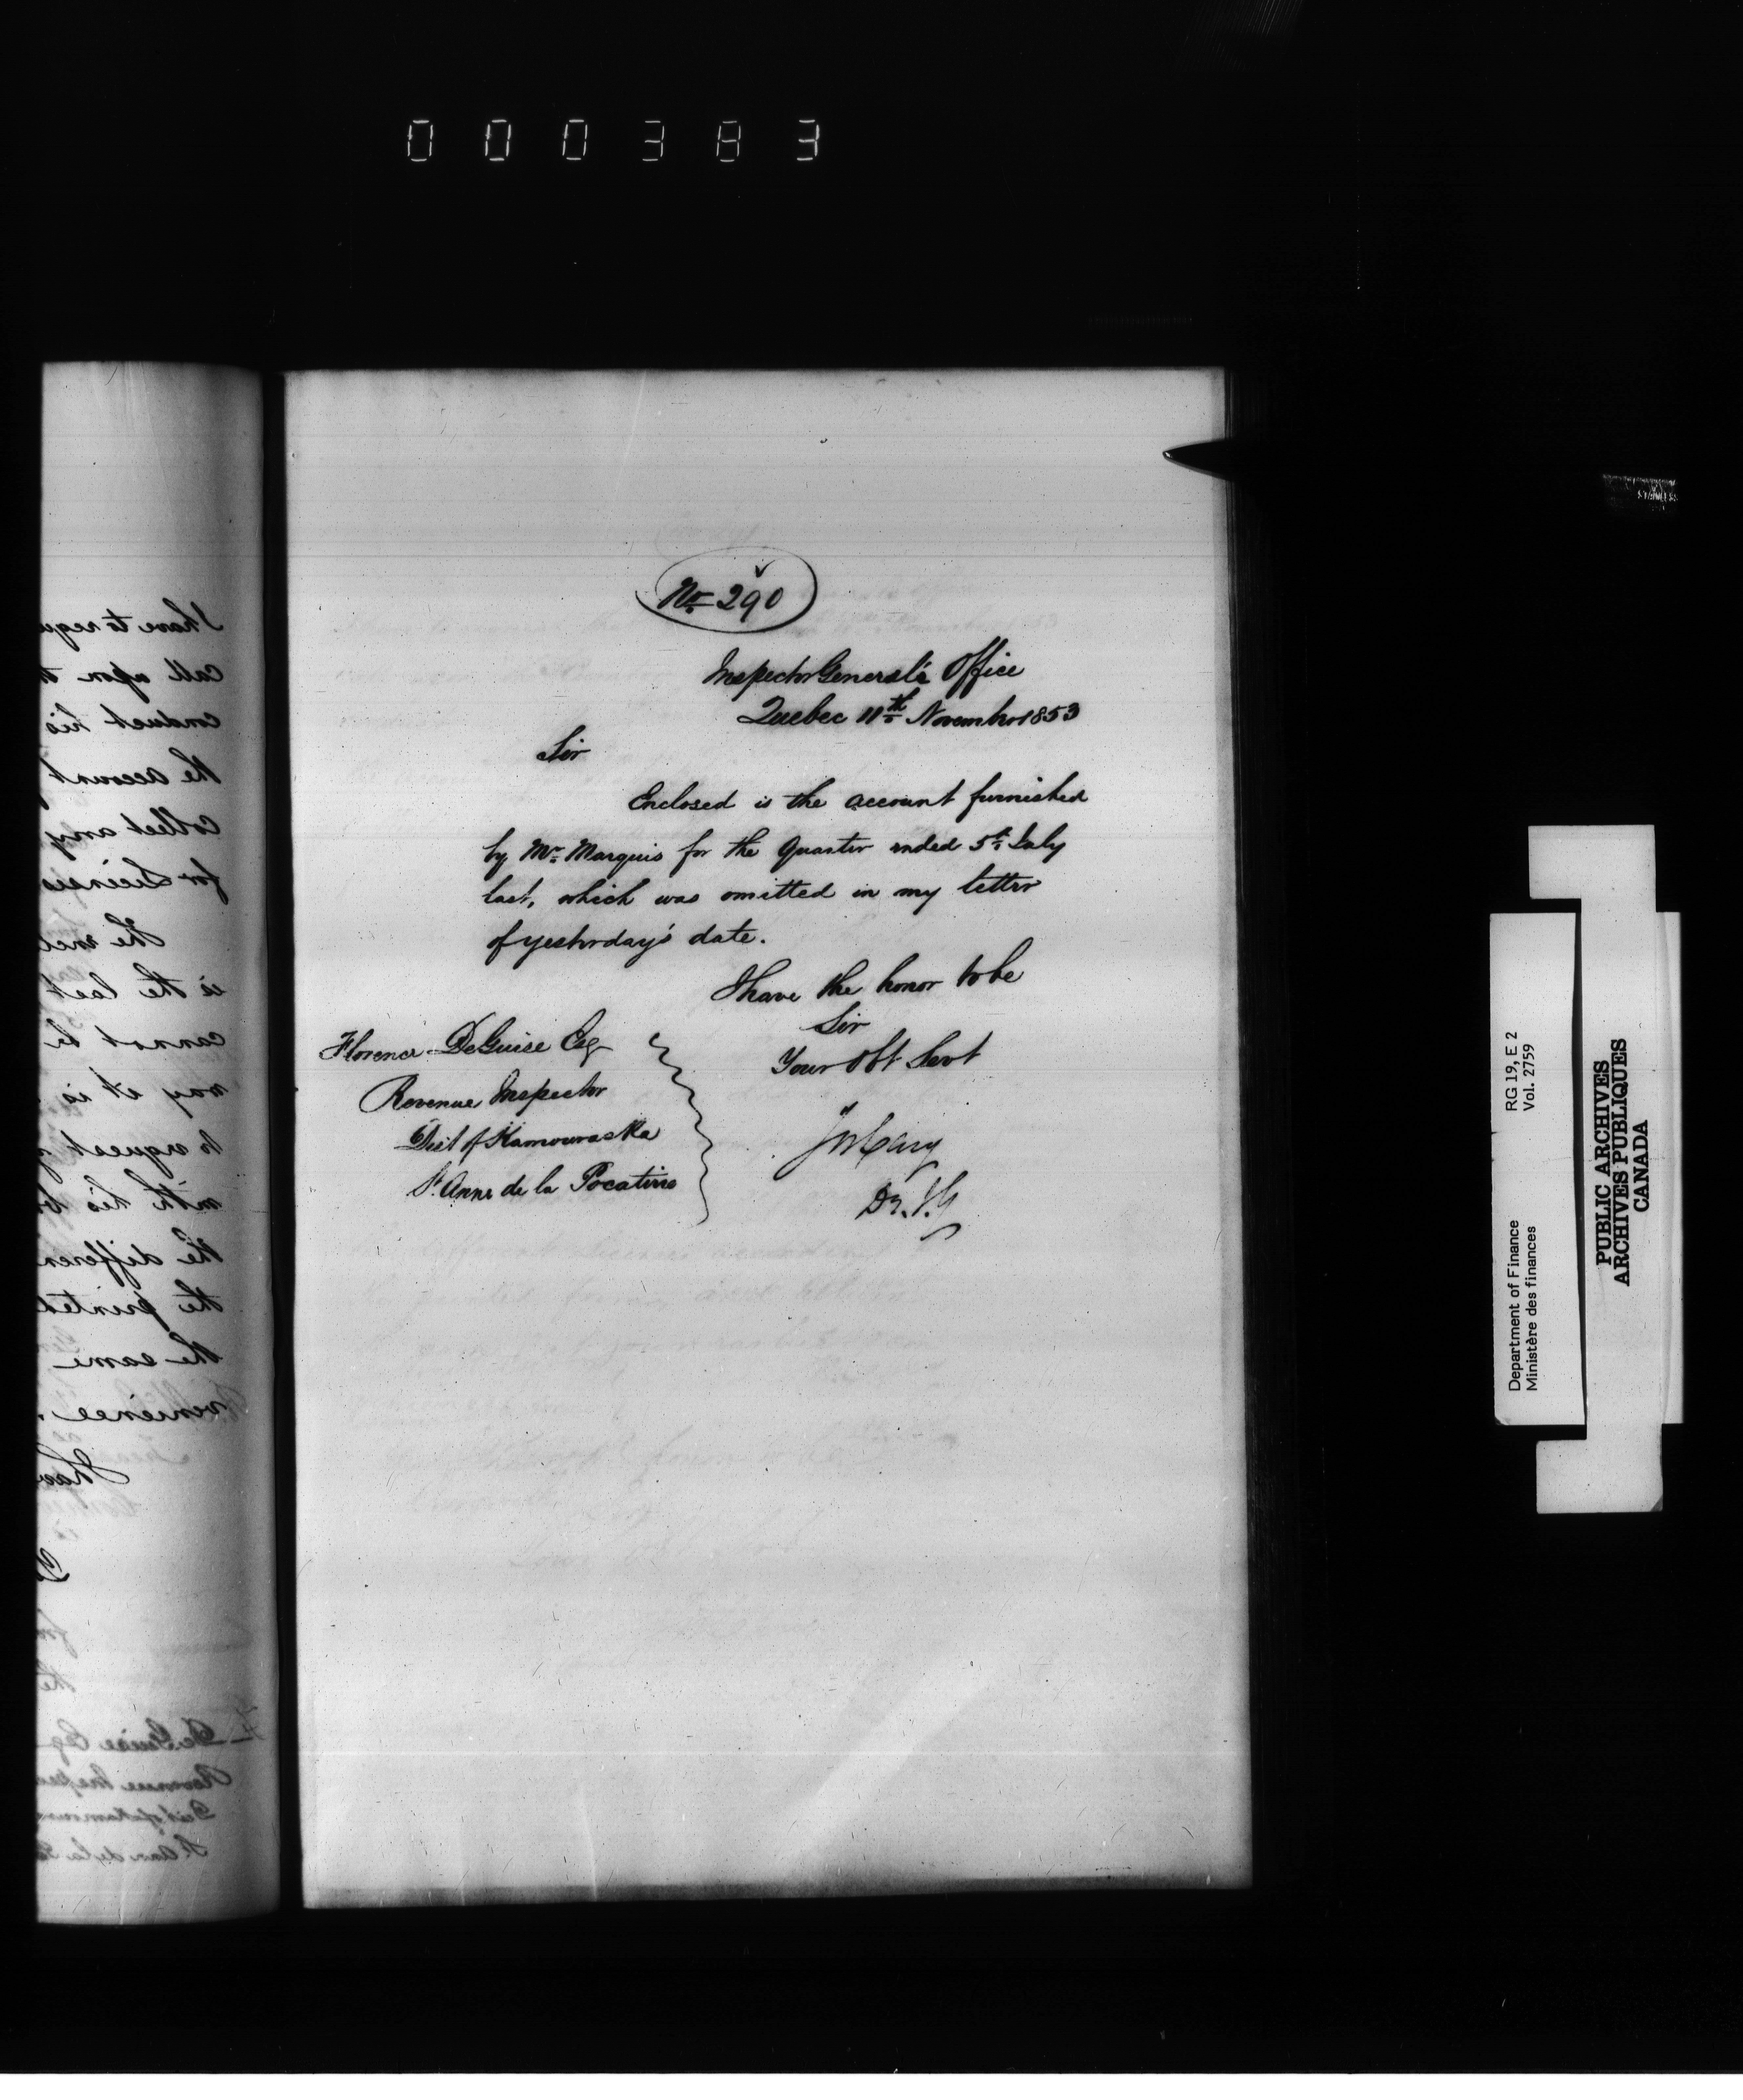 000383
No. 290
Inspector General's Office
Quebec 11th November 1853
Sir
Enclosed is the account furnished
by Mr. Marquis for the Quarter ended 5th July
last, which was omitted in my letter
of yesterday's date.
I have the honor to be
Sir
Your Obt Servt
Florence DeGuise Esq
Revenue Inspector
Dist of Kamouraska
St. Anne de la Pocatiere
J W Cary
D. I. G
I have to requ
call upon
conduct his
the account
collect any
for Licenses
is the last
cannot be
way it is
to request
with his
the differen
the printed
the same
venience.
I have
De Guise Esq
Revenue Inspec
Dist of Kamoura
St Ann de la Po
RG 19, E 2
Vol. 2759
Department of Finance
Ministère des finances
PUBLIC ARCHIVES
ARCHIVES PUBLIQUES
CANADA